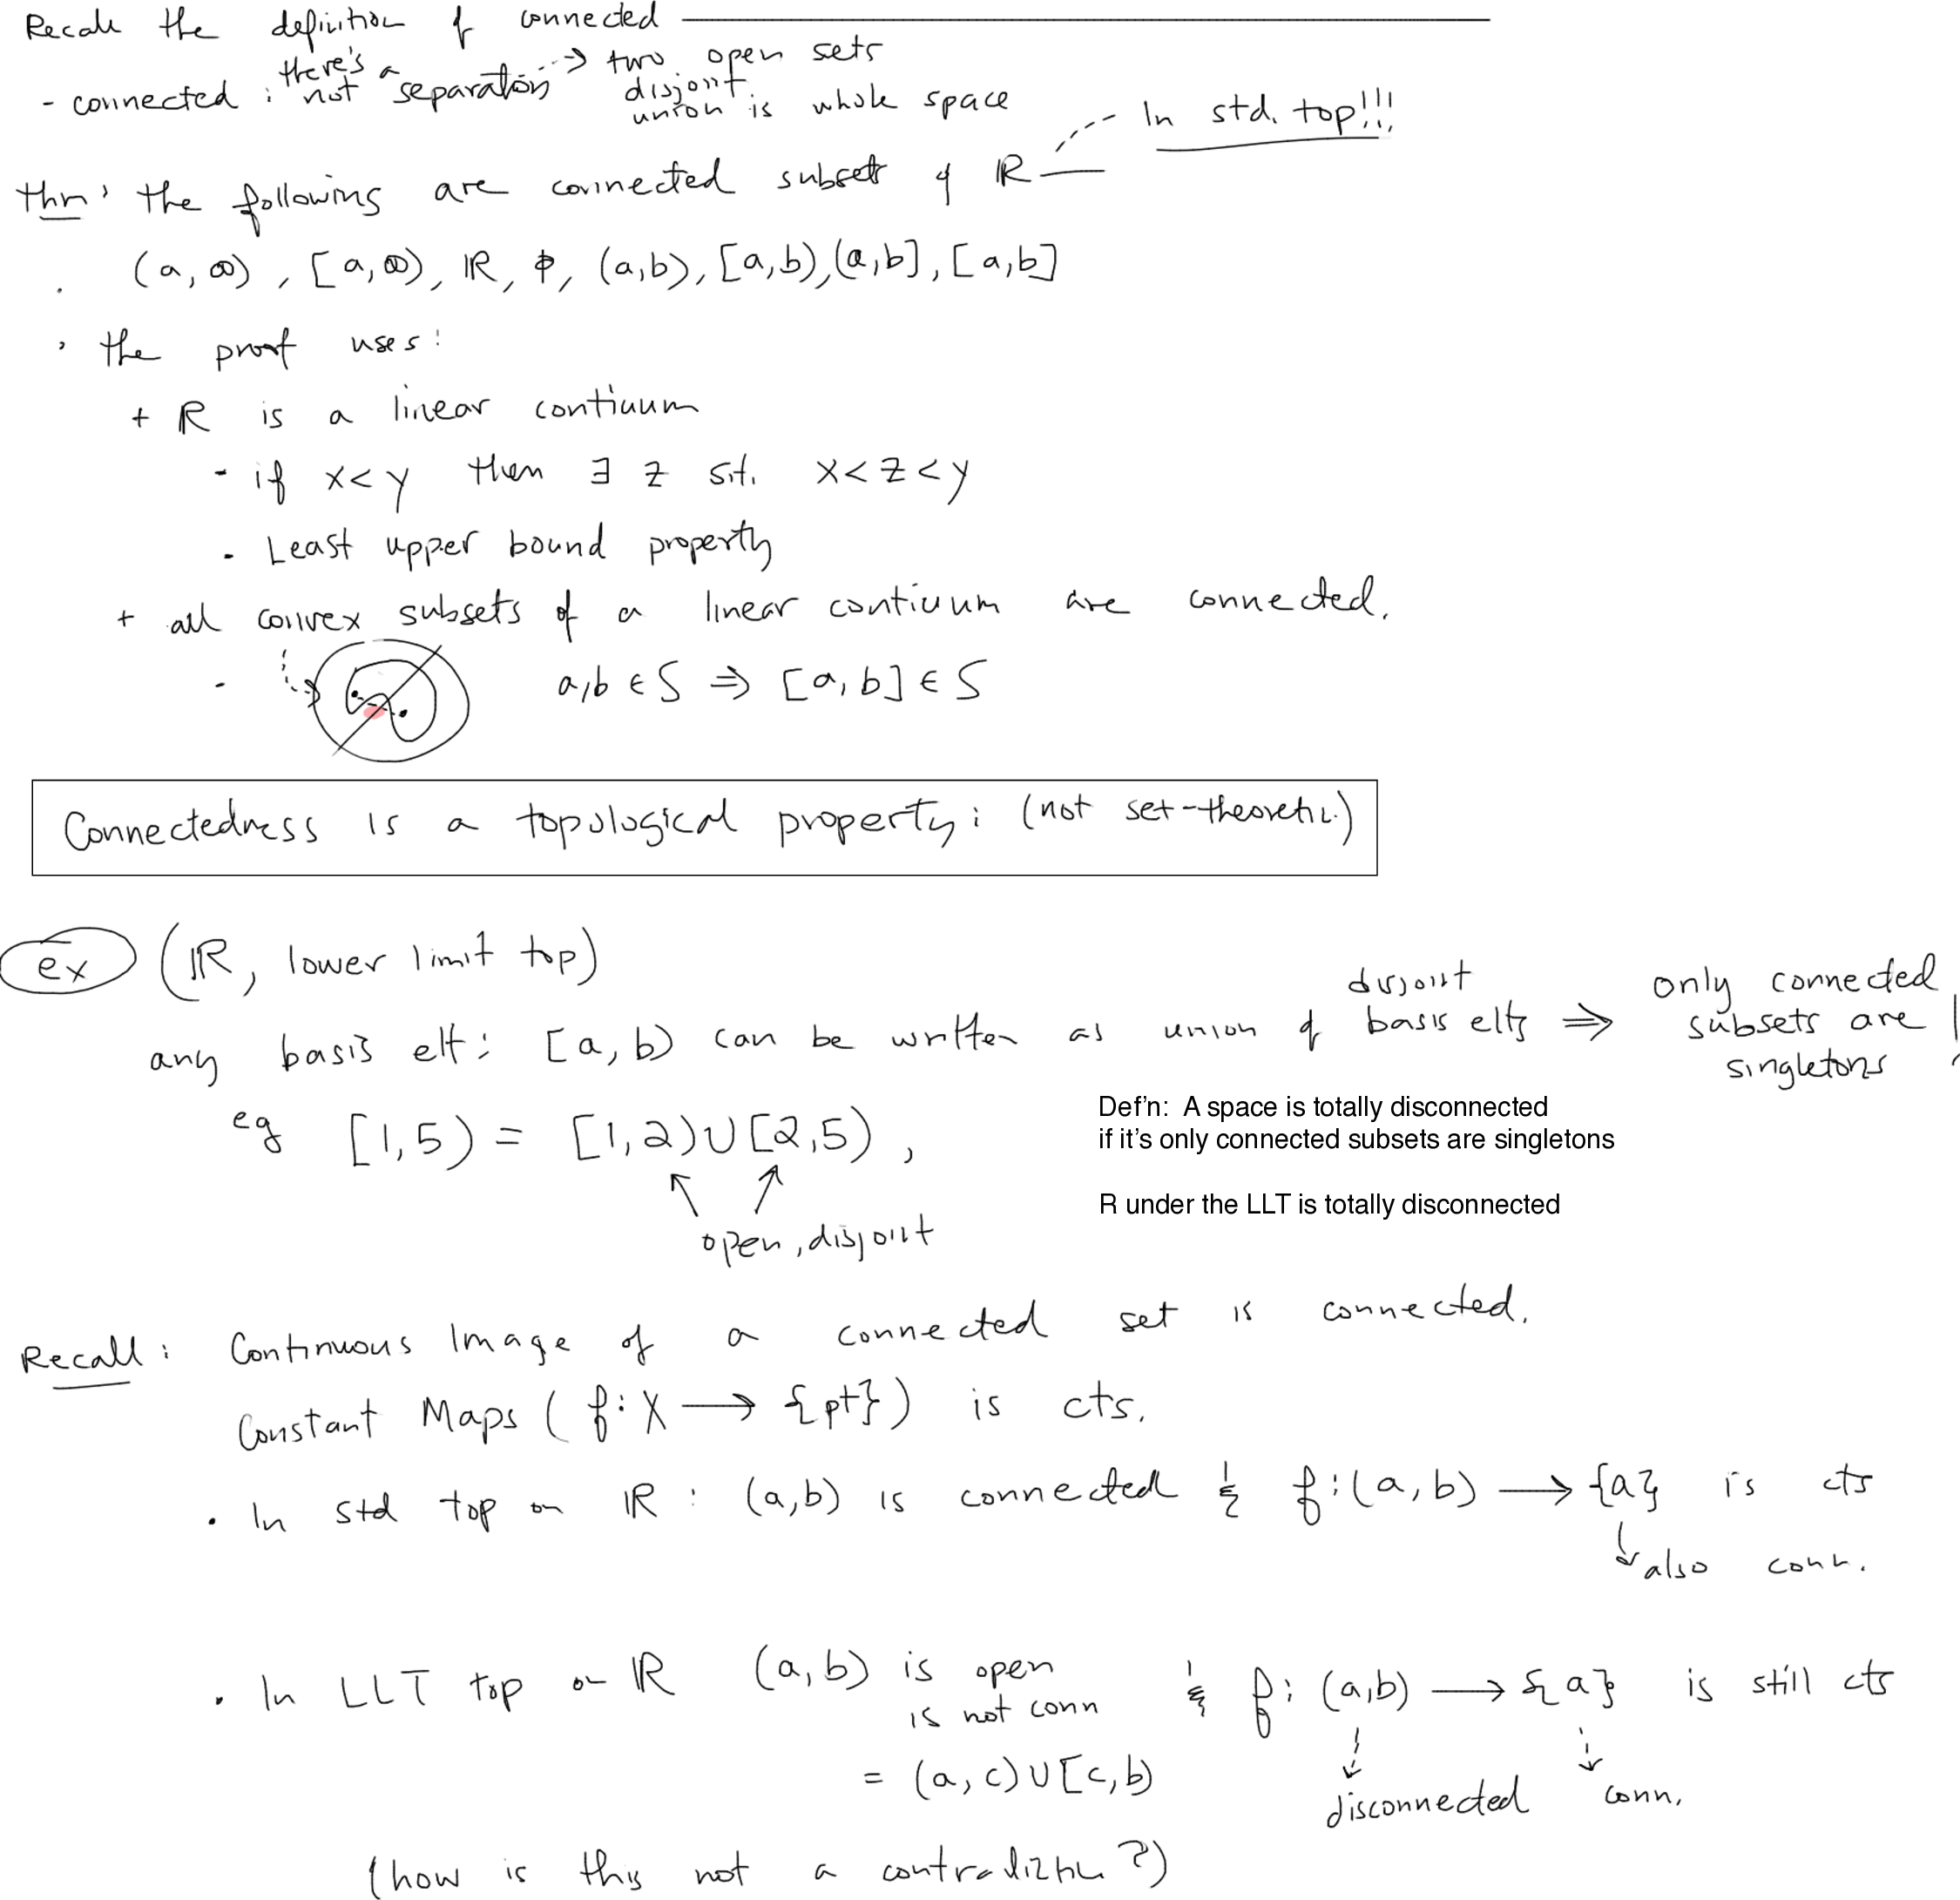 Recall the definition of connected
- connected : there's not a separation --> two open sets
disjoint
union is whole space
In std. top!!!
Thm: the following are connected subsets of ℝ
(a, ∞), [a, ∞), ℝ, ϕ, (a,b), [a,b), (a,b], [a,b]
• the proof uses:
+ ℝ is a linear contiuum
- if x<y then ∃ z s.t. x<z<y
- Least upper bound property
+ all convex subsets of a linear contiuum are connected.
- a,b ∈ S ⇒ [a,b] ∈ S
Connectedness is a topological property: (not set-theoretic.)
ex (ℝ, lower limit top)
any basis elt: [a,b) can be written as union of disjoint basis elts ⇒ only connected subsets are singletons!
eg [1,5) = [1,2)∪[2,5),
open, disjoint
Def'n: A space is totally disconnected
if it's only connected subsets are singletons
R under the LLT is totally disconnected
Recall: Continuous Image of a connected set is connected.
Constant Maps (f: X → {pt}) is cts.
• In std top on ℝ: (a,b) is connected & f:(a,b) → {a} is cts
also conn.
• In LLT top on ℝ (a,b) is open & f: (a,b) → {a} is still cts
is not conn
= (a,c)∪[c,b)
disconnected conn.
(how is this not a contradiction?)